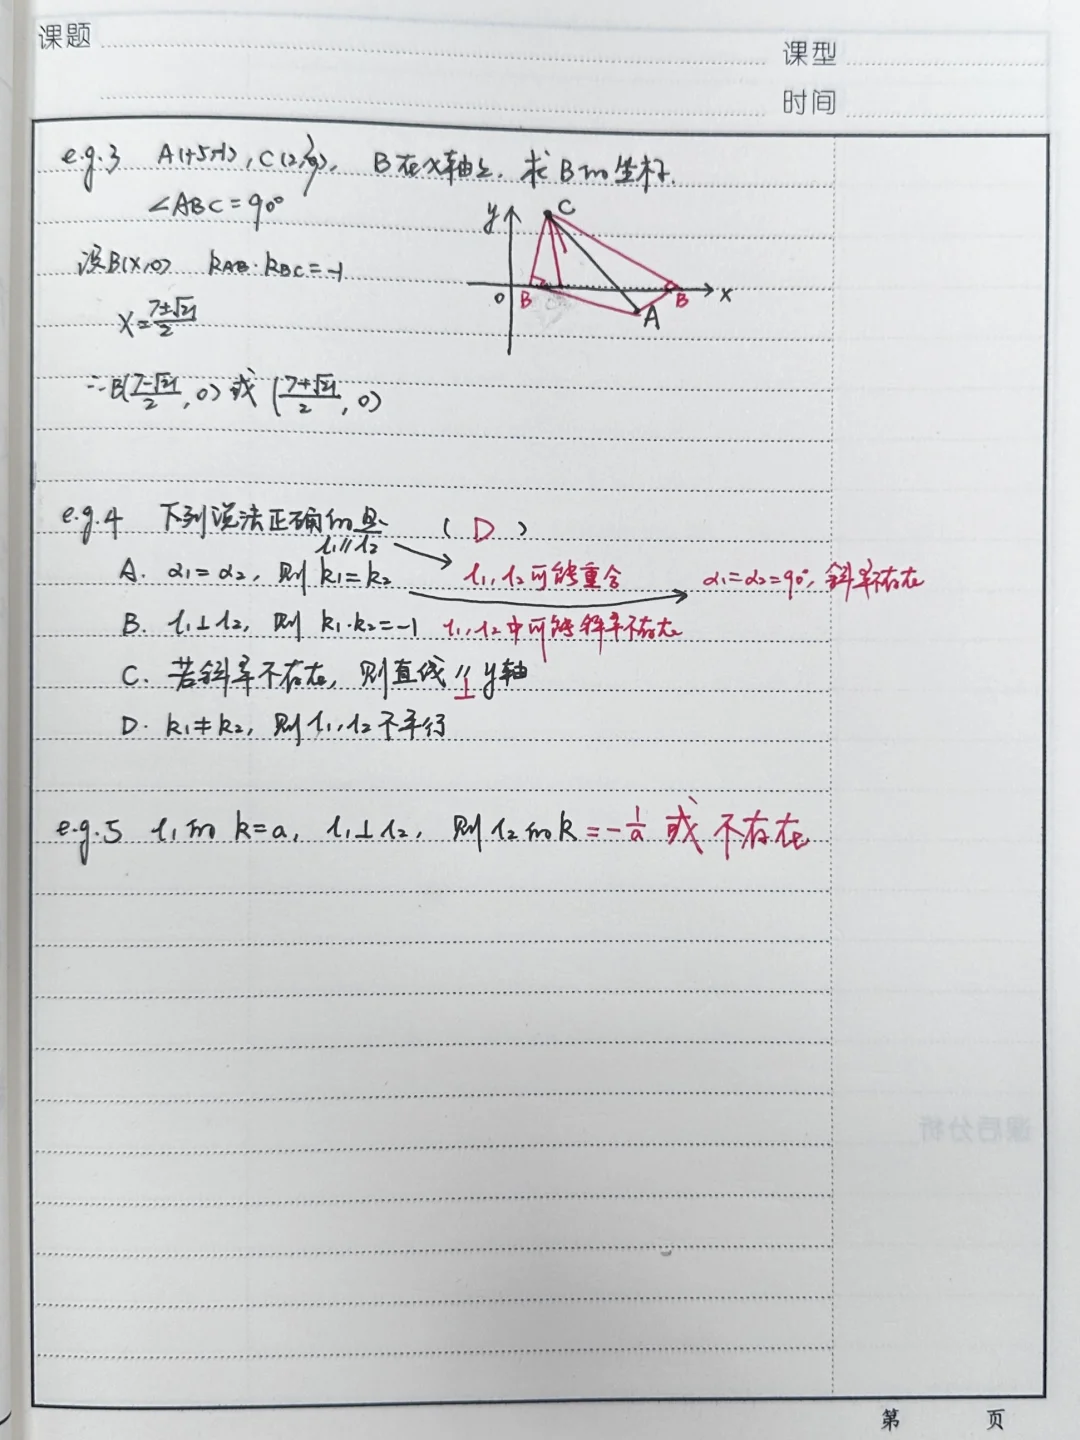 课题
课型
时间
e.g.3 A(+5,-1), C(2,3), B在x轴上, 求B的坐标.
∠ABC=90°
y C
设B(x,0) kAB·kBC=-1
0 B B x
A
x=(7±√21)/2
∴B((7-√21)/2, 0) 或 ((7+√21)/2, 0)
e.g.4 下列说法正确的是 ( D )
l₁∥l₂
A. α₁=α₂, 则 k₁=k₂ l₁,l₂可能重合 α₁=α₂=90°, 斜率不存在
B. l₁⊥l₂, 则 k₁·k₂=-1 l₁,l₂中可能斜率不存在
C. 若斜率不存在, 则直线∥y轴
⊥
D. k₁≠k₂, 则 l₁,l₂不平行
e.g.5 l₁的 k=a, l₁⊥l₂, 则 l₂的k=-1/a 或 不存在
课后分析
第 页